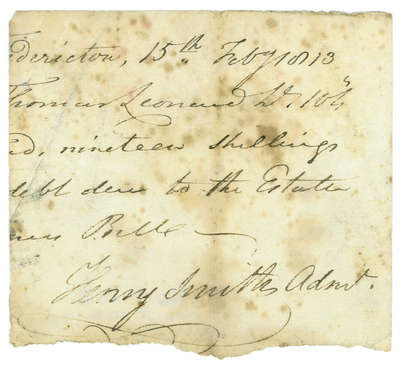 dericton, 15th Feby 1813
Thomas Leonard
nineteen shillings
debt due to the Estate
Bell
Henry Smith Admr.